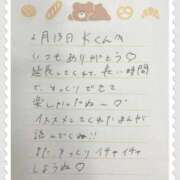 2月13日 Kくんへ
いつもありがとう♡
延長してくれて、長い時間
で、ゆっくりできて
楽しかったね〜♡
イススメしてくれたまんが
読んでくし!!
また ゆっくり イチャイチャ
しようね♡